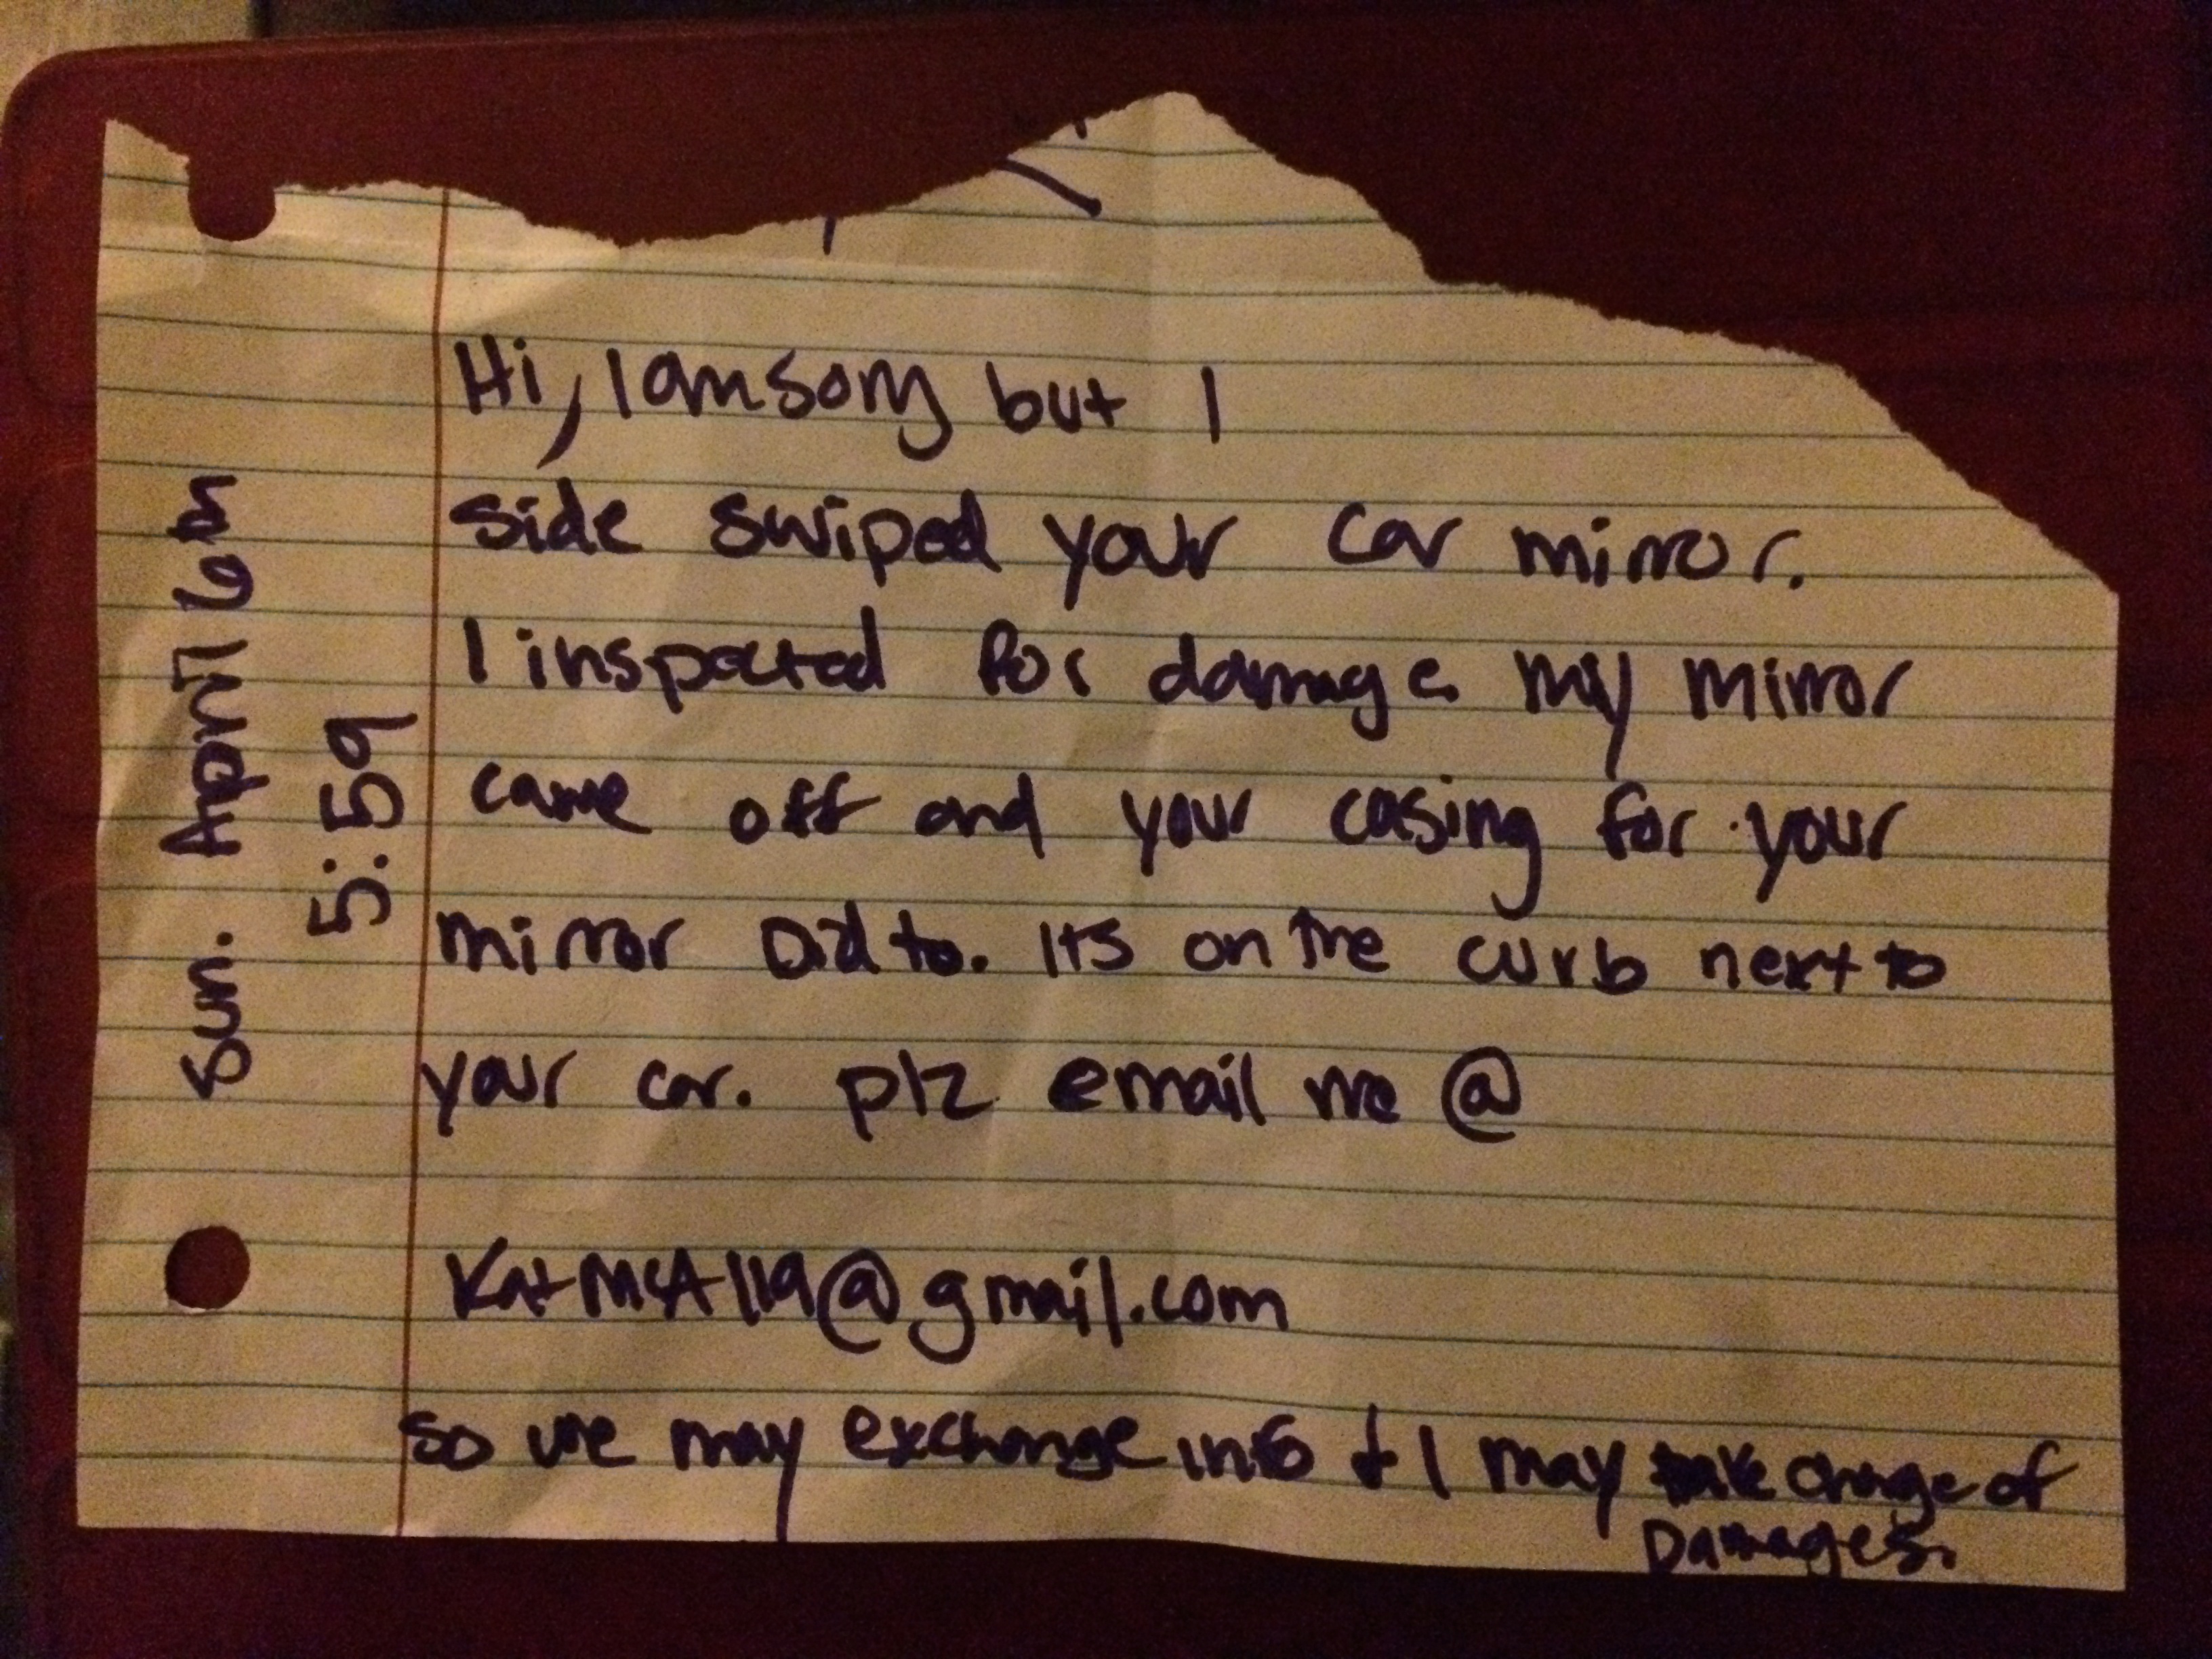 Hi, I am sorry but I
side swiped your car mirror.
I inspected for damage my mirror
came off and your casing for your
mirror Did to. Its on the curb next to
your car. plz email me @
KatMcA119@gmail.com
so we may exchange info & I may take charge of
Damages.
Sun. April 6th
5:59